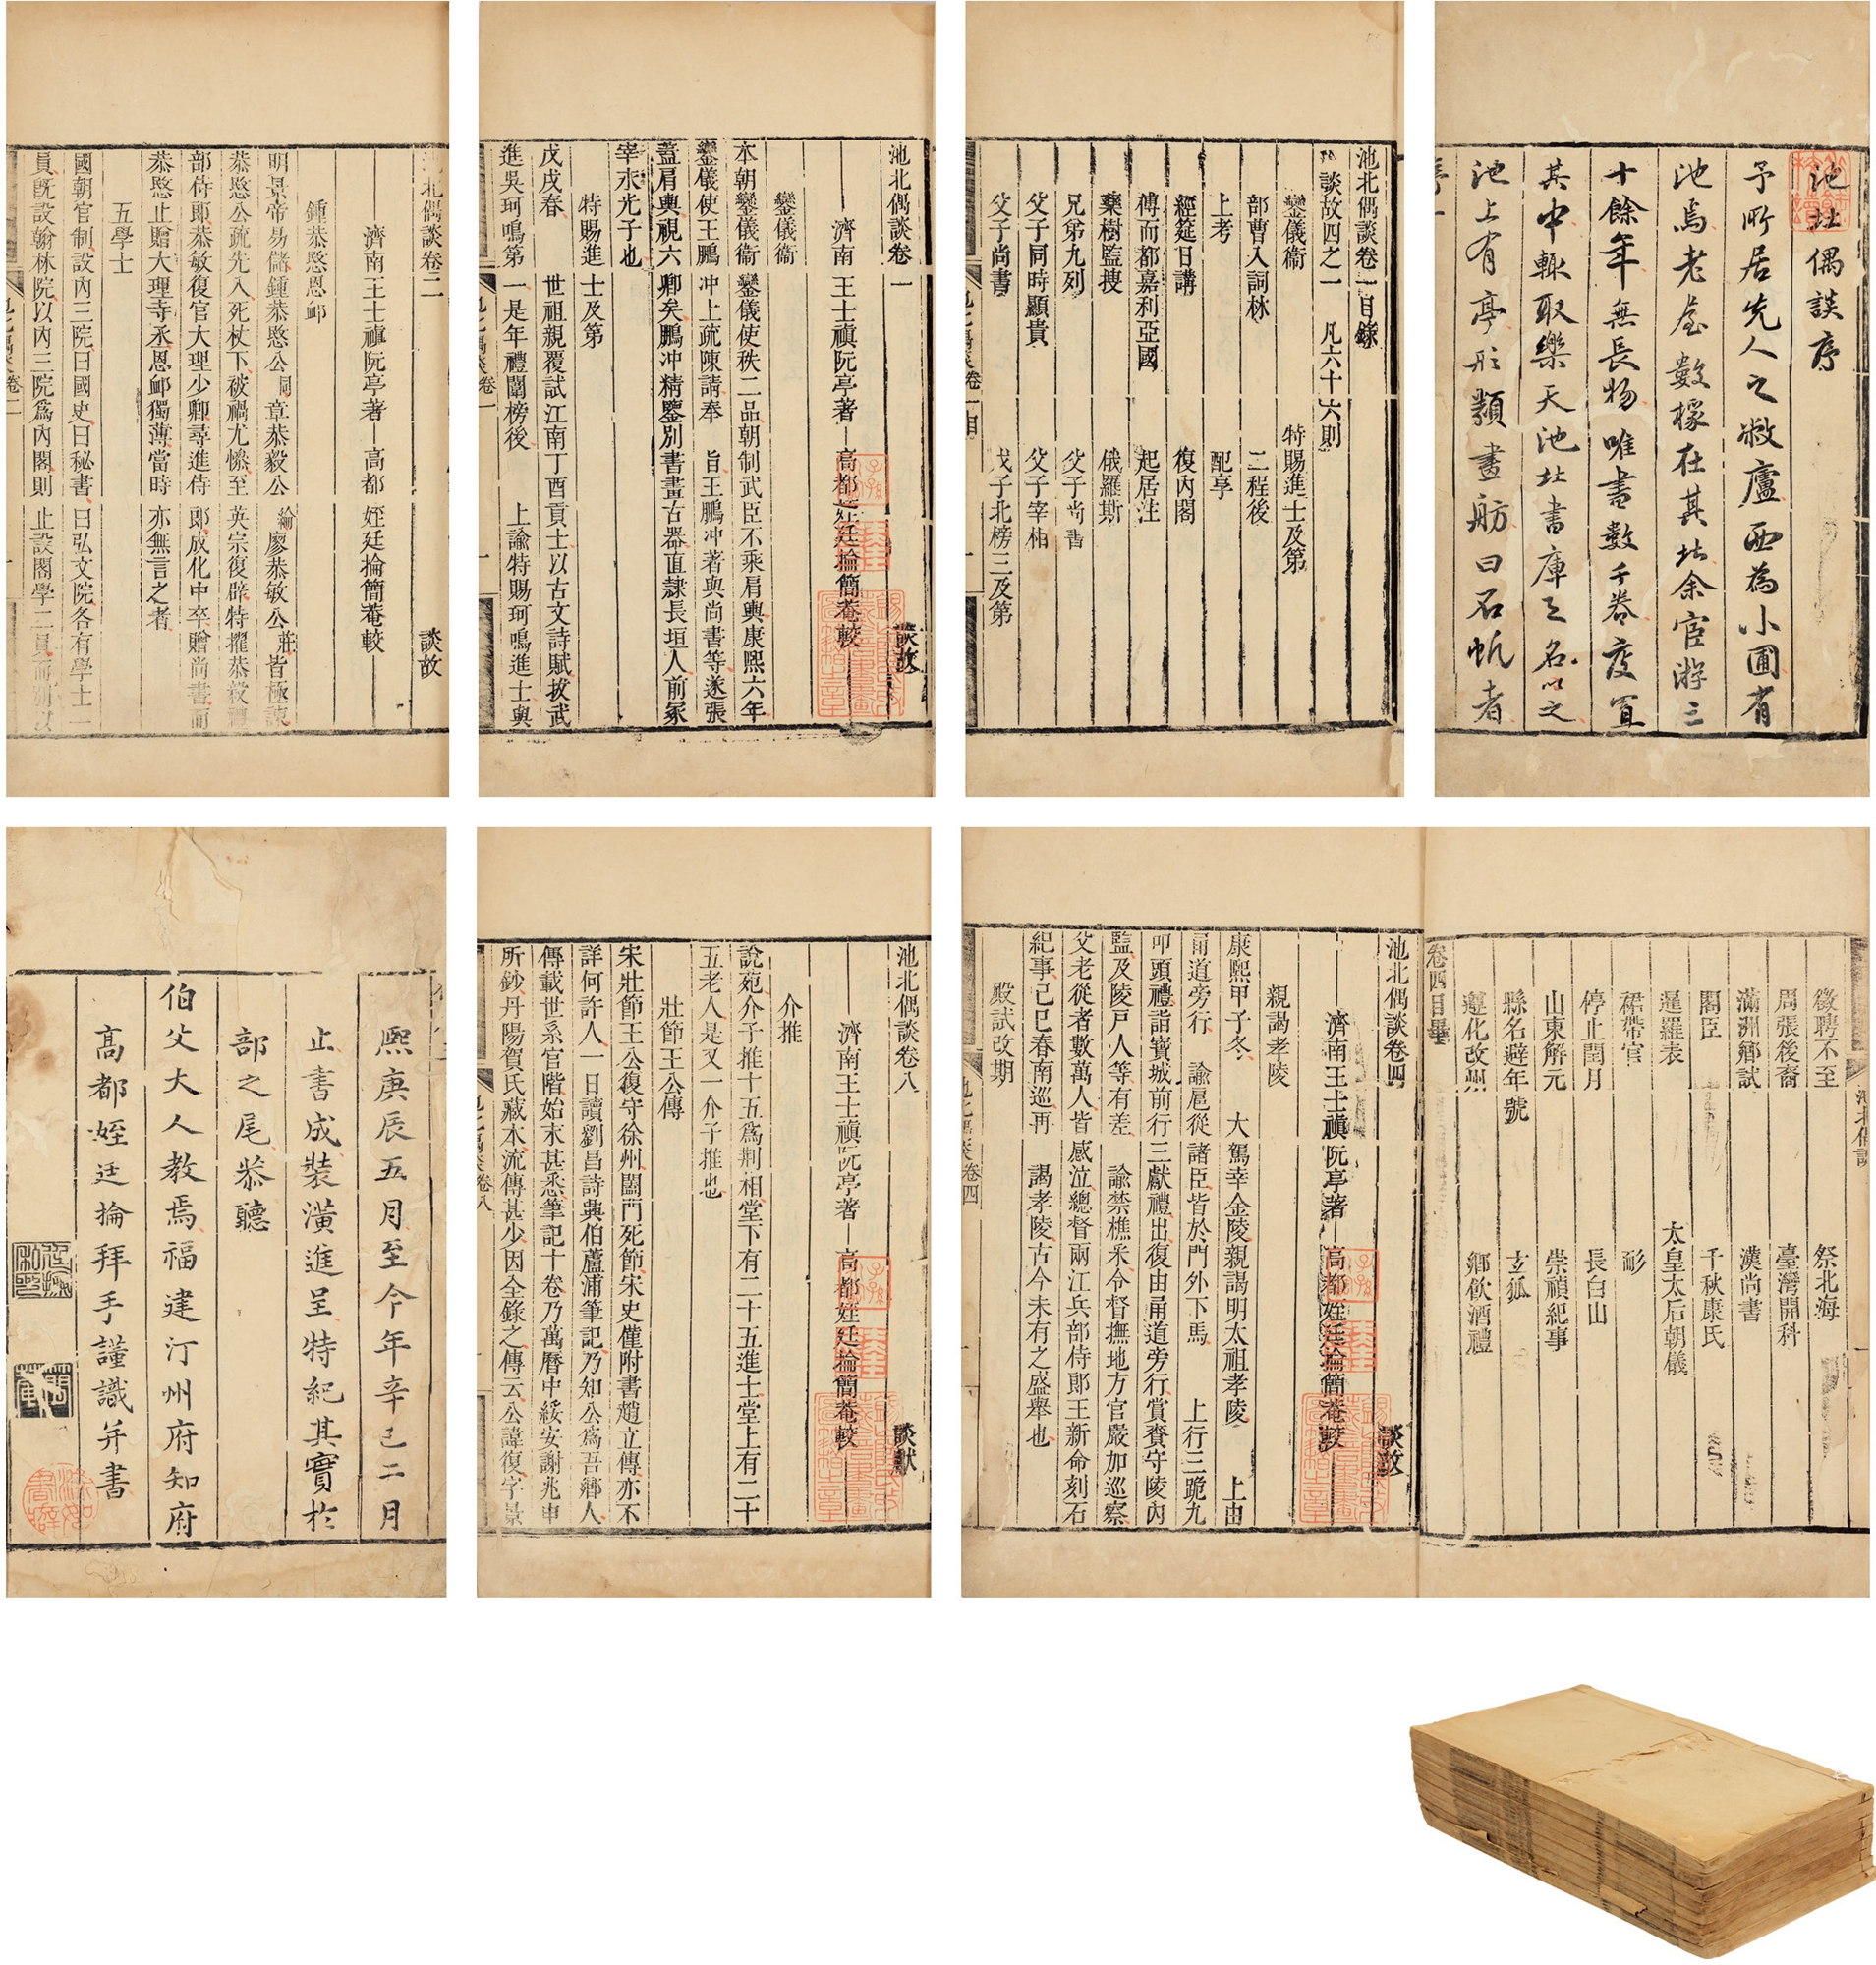 池北偶談序
予所居先人之敝廬西為小圃有
池焉老屋數椽在其北余宦游三
十餘年無長物唯書數千卷庋寘
其中輒取樂天池北書庫之名以之
池上有亭形類畫舫曰石帆者
池北偶談卷一目錄
談故四之一 凡六十六則
鑾儀衞 特賜進士及第
部曹入詞林 二程後
上考 配享
經筵日講 復內閣
傅而都嘉利亞國 起居注
藥樹監搜 俄羅斯
兄弟九列 父子尚書
父子同時顯貴 父子宰相
父子尚書 父子北榜三及第
池北偶談卷一 談故
濟南 王士禛阮亭著 高都 姪廷掄簡菴較
鑾儀衞
本朝鑾儀衞鑾儀使秩二品朝制武臣不乘肩輿康熙六年
鑾儀使王鵬冲上疏陳請奉 旨王鵬冲著與尚書等遂張
蓋肩輿視六卿矣鵬冲精鑒別書畫古器直隸長垣人前冢
宰永光子也
特賜進士及第
戊戌春 世祖親覆試江南丁酉貢士以古文詩賦拔武
進吳珂鳴第一是年禮闈榜後 上諭特賜珂鳴進士與
池北偶談卷二 談故
濟南王士禛阮亭著 高都 姪廷掄簡菴較
鍾恭愍恩卹
明景帝易儲鍾恭愍公同章恭毅公綸廖恭敏公莊皆極諫
恭愍公疏先入死杖下被禍尤慘至英宗復辟特擢恭毅禮
部侍郎恭敏復官大理少卿尋進侍郎成化中卒贈尚書而
恭愍止贈大理寺丞恩卹獨薄當時亦無言之者
五學士
國朝官制設內三院曰國史曰秘書曰弘文院各有學士一
員旣設翰林院以內三院爲內閣則止設閣學二員而別以
徵聘不至 祭北海
周張後裔 臺灣開科
滿洲鄉試 漢尚書
閣臣 千秋康氏
暹羅表 太皇太后朝儀
裙帶官 耏
停止閏月 長白山
山東解元 崇禎紀事
縣名避年號 玄狐
遵化改州 鄉飲酒禮
卷四目畢
池北偶談卷四 談故
濟南王士禛阮亭著 高都 姪廷掄簡菴較
親謁孝陵
康熙甲子冬 大駕幸金陵親謁明太祖孝陵 上由
甬道旁行 諭扈從諸臣皆於門外下馬 上行三跪九
叩頭禮詣寶城前行三獻禮出復由甬道旁行賞賚守陵內
監及陵戶人等有差 諭禁樵采令督撫地方官嚴加巡察
父老從者數萬人皆感泣總督兩江兵部侍郎王新命刻石
紀事己巳春南巡再 謁孝陵古今未有之盛舉也
殿試改期
池北偶談卷八 談獻
濟南王士禛阮亭著 高都 姪廷掄簡菴較
介推
說苑介子推十五爲荆相堂下有二十五進士堂上有二十
五老人是又一介子推也
壯節王公傳
宋壯節王公復守徐州闔門死節宋史僅附書趙立傳亦不
詳何許人一日讀劉昌詩興伯蘆浦筆記乃知公爲吾鄉人
傳載世系官階始末甚悉筆記十卷乃萬曆中綏安謝兆申
所鈔丹陽賀氏藏本流傳甚少因全錄之傳云公諱復字景
熙庚辰五月至今年辛巳二月
止書成裝潢進呈特紀其實於
部之尾恭聽
伯父大人教焉福建汀州府知府
高都姪廷掄拜手謹識并書